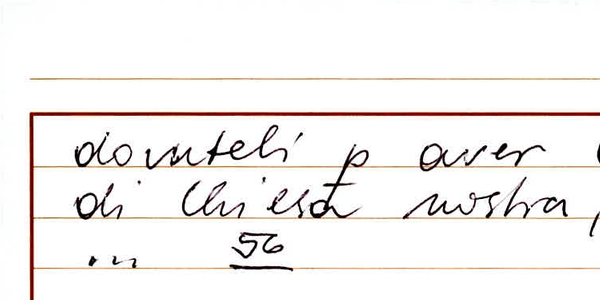 dovuteli p aver
di Chiesa nostra,
... 56